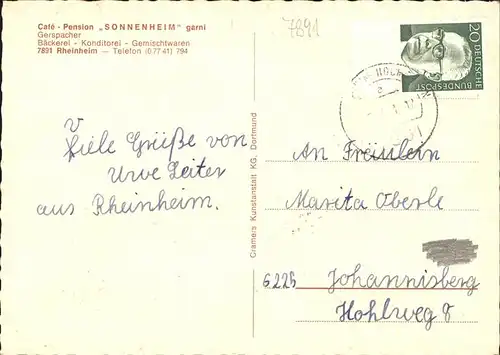 Café - Pension „SONNENHEIM“ garni
Gerspacher
Bäckerei - Konditorei - Gemischtwaren
7891 Rheinheim — Telefon (0 77 41) 794
7891
20
DEUTSCHE
BUNDESPOST
Viele Grüße von
Leiter
aus Rheinheim.
Cramers Kunstanstalt KG, Dortmund
An Fräulein
Marita Oberle
6225 Johannisberg
Hohlweg 8